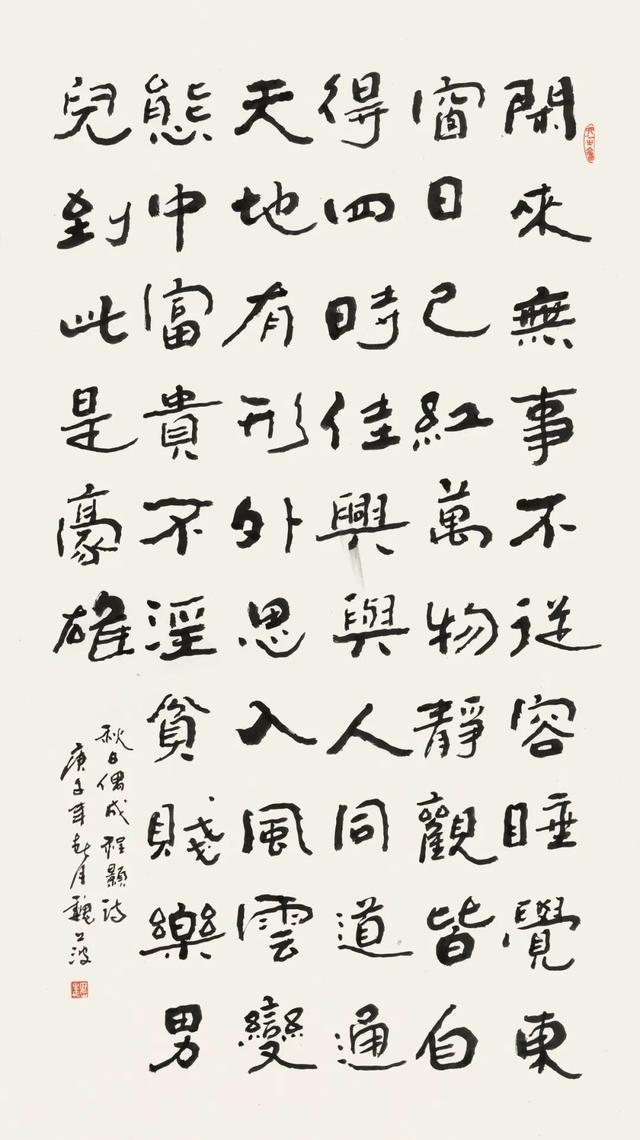 閑來無事不從容睡覺東
窗日已紅萬物靜觀皆自
得四時佳興與人同道通
天地有形外思入風雲變
態中富貴不淫貧賤樂男
兒到此是豪雄
秋日偶成 程顥詩
庚子年 月魏 波